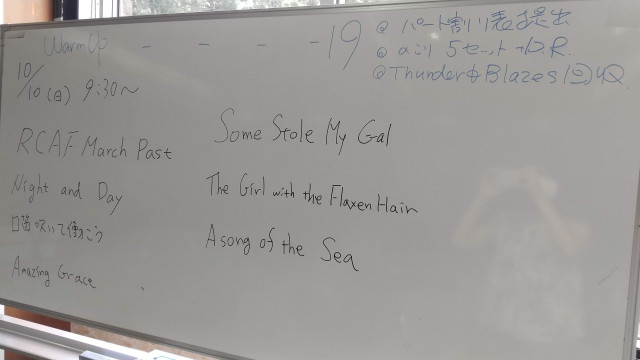 WarmUp - - - - 19
10/10(日) 9:30~
RCAF March Past
Night and Day
口笛吹いて働こう
Amazing Grace
Some Stole My Gal
The Girl with the Flaxen Hair
A song of the Sea
@ パート割り表提出
@ 5セット
@ Thunder & Blazes